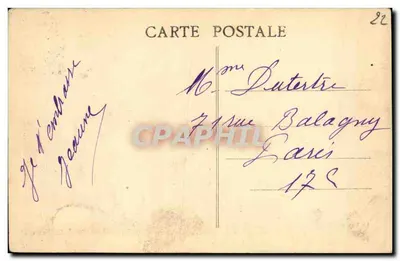 22
CARTE POSTALE
Je t'embrasse
Jeanne
Mme Dutertre
71 rue Balagny
Paris
17e
CPAPHIL.COM